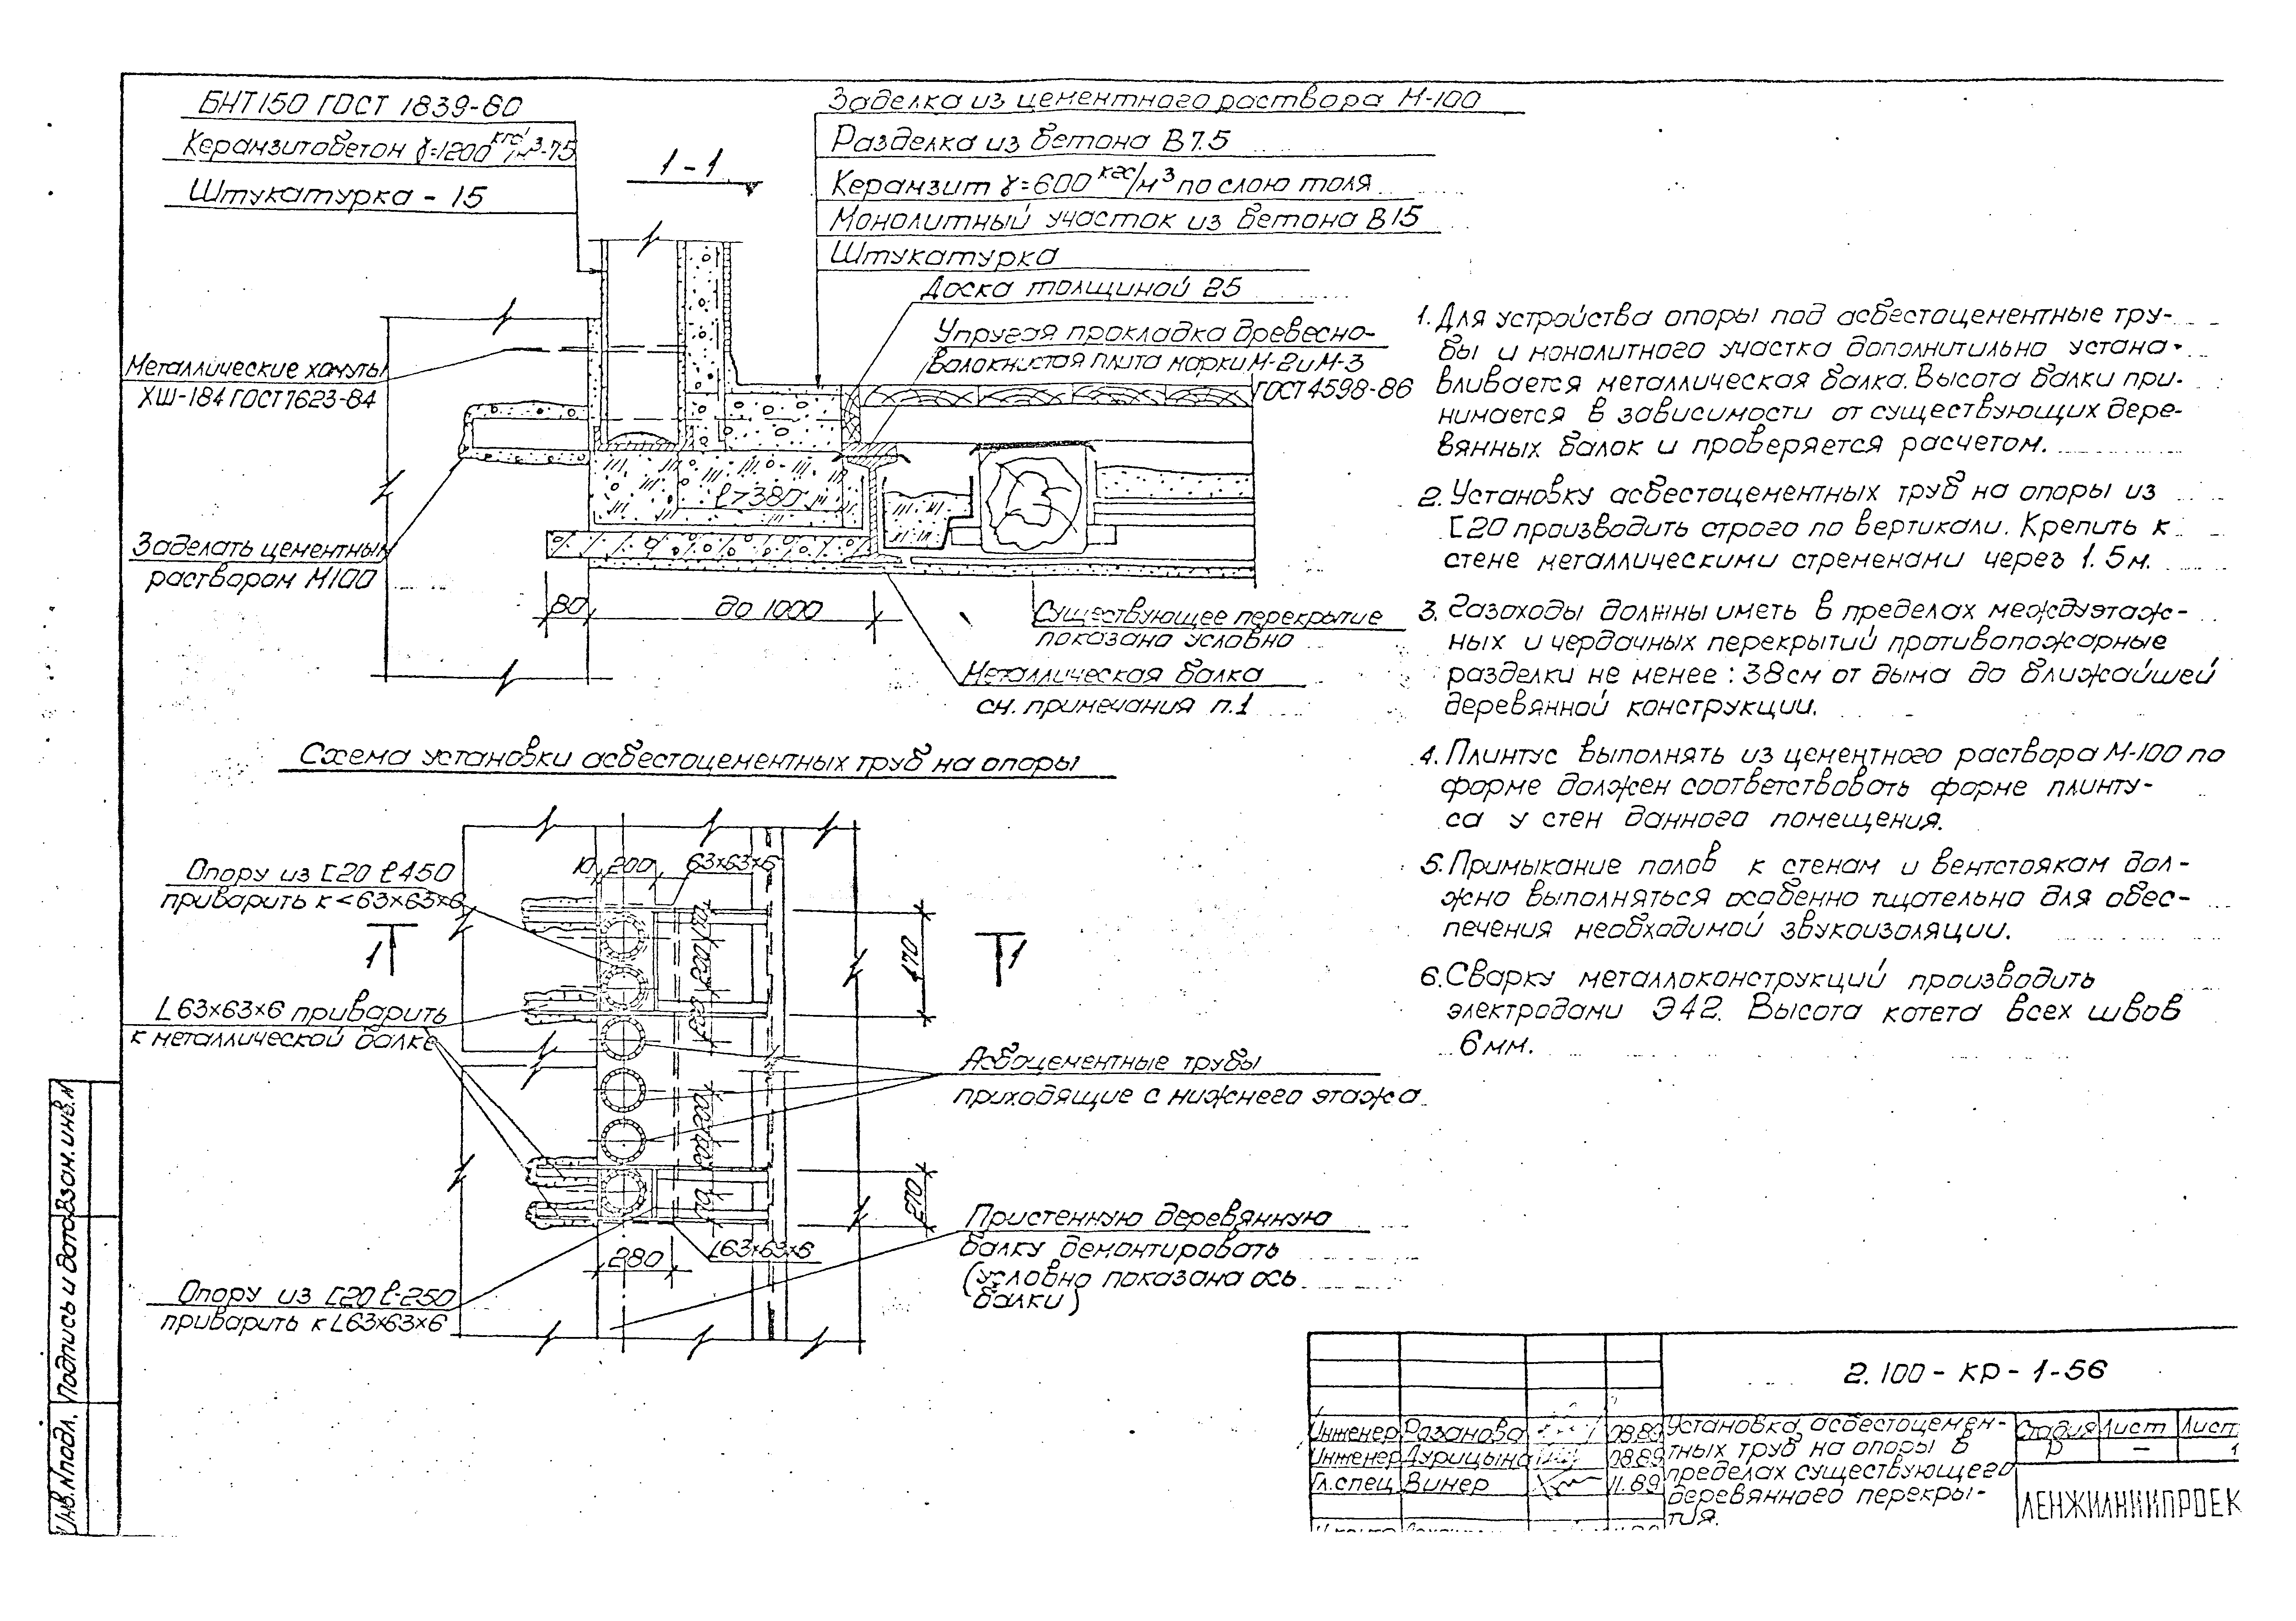 БНТ150 ГОСТ 1839-80
Керамзитобетон γ=1200 кгс/м³-75
Штукатурка - 15
1-1
Заделка из цементного раствора М-100
Разделка из бетона В7.5
Керамзит γ=600 кгс/м³ по слою толя
Монолитный участок из бетона В15
Штукатурка
Доска толщиной 25
Упругая прокладка древесно-
волокнистая плита марки М-2 и М-3
ГОСТ 4598-86
Металлические хомуты
ХШ-184 ГОСТ 7623-84
Заделать цементным
раствором М100
ℓ>380
80
до 1000
Существующее перекрытие
показано условно
Металлическая балка
см. примечания п.1
Схема установки асбестоцементных труб на опоры
Опору из [20 ℓ450
приварить к <63×63×6
10
200
63×63×6
1
1
470
L63×63×6 приварить
к металлической балке
Асбоцементные трубы
приходящие с нижнего этажа
270
280
L63×63×6
Пристенную деревянную
балку демонтировать
(условно показана ось
балки)
Опору из [20 ℓ-250
приварить к L63×63×6
1. Для устройства опоры под асбестоцементные тру-
бы и монолитного участка дополнитильно устана-
вливается металлическая балка. Высота балки при-
нимается в зависимости от существующих дере-
вянных балок и проверяется расчетом.
2. Установку асбестоцементных труб на опоры из
[20 производить строго по вертикали. Крепить к
стене металлическими стременами через 1.5м.
3. Газоходы должны иметь в пределах междуэтаж-
ных и чердачных перекрытий противопожарные
разделки не менее: 38см от дыма до ближайшей
деревянной конструкции.
4. Плинтус выполнять из цементного раствора М-100 по
форме должен соответствовать форме плинту-
са у стен данного помещения.
5. Примыкание полов к стенам и вентстоякам дол-
жно выполняться особенно тщательно для обес-
печения необходимой звукоизоляции.
6. Сварку металлоконструкций производить
электродами Э42. Высота катета всех швов
6мм.
Взам. инв.№
Подпись и дата
Инв.№подл.
2.100 - КР - 1-56
Инженер Разанова 08.89
Инженер Дурицына 08.89
Гл.спец Винер 11.89
Установка асбестоцемен-
тных труб на опоры в
пределах существующего
деревянного перекры-
тия.
Стадия Лист Лист
Р — 1
ЛЕНЖИЛНИИПРОЕК